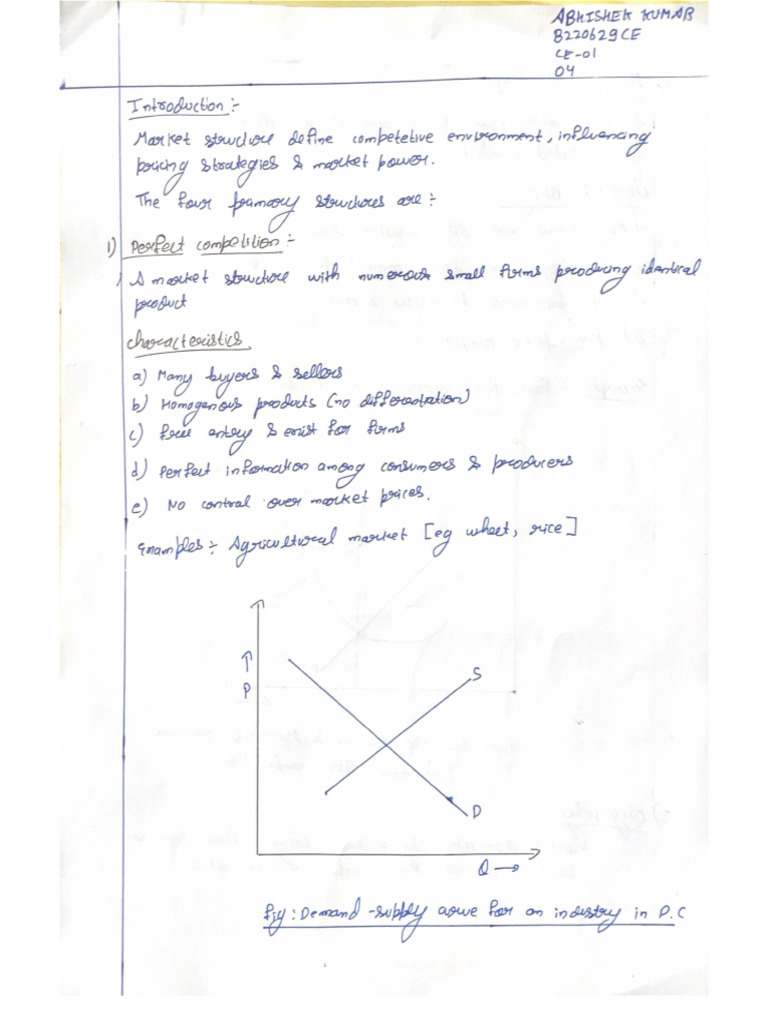 ABHISHEK KUMAR
B220629CE
CE-01
04
Introduction :-
Market structure define competetive environment, influencing
pricing strategies & market power.
The four primary structures are :-
1) Perfect competition :-
A market structure with numerous small firms producing identical
product
characteristics.
a) Many buyers & sellers
b) Homogenous products (no differentiation)
c) free entry & exist for firms
d) Perfect information among consumers & producers
e) No control over market prices.
Examples :- Agricultural market [eg wheat, rice]
↑
P
S
D
Q →
fig : Demand - supply curve for an industry in P.C